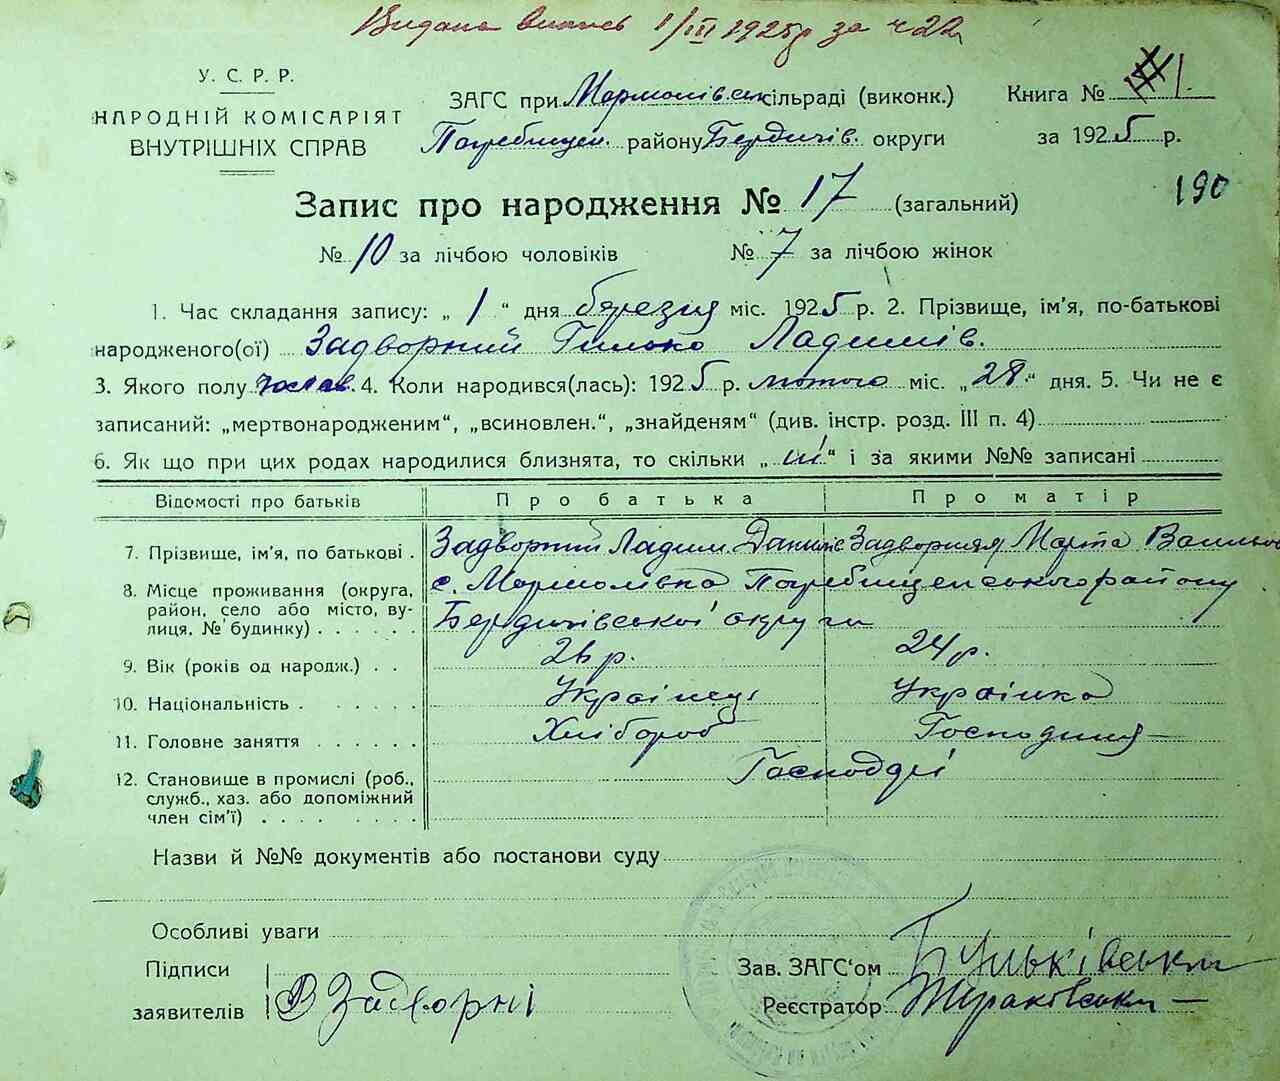 Видана виписъ 1/III 1925 р за ч 22
У. С. Р. Р.
НАРОДНІЙ КОМІСАРІЯТ
ВНУТРІШНІХ СПРАВ
ЗАГС при Мормолівськ сільраді (виконк.)
Погребищен. району Бердичів. округи
Книга № 1.
за 1925 р.
Запис про народження № 17 (загальний)
190
№ 10 за лічбою чоловіків № 7 за лічбою жінок
1. Час складання запису: „ 1 “ дня березня міс. 1925 р. 2. Прізвище, ім'я, по-батькові
народженого(ої) Задворний Гилько Ладимів.
3. Якого полу чолов. 4. Коли народився(лась): 1925 р. лютого міс. „28“ дня. 5. Чи не є
записаний: „мертвонародженим“, „всиновлен.“, „знайденям“ (див. інстр. розд. III п. 4)
6. Як що при цих родах народилися близнята, то скільки „ “ і за якими №№ записані
Відомості про батьків Про батька Про матір
7. Прізвище, ім'я, по батькові . Задворний Ладим Данилів Задворняя Марта
8. Місце проживання (округа, район, село або місто, вулиця, № будинку) . . . . . . с. Мормолівка Погребищенського району
Бердичівської округи
9. Вік (років од народж.) . . 26 р. 24 р.
10. Національність . . . . . . Українець Українка
11. Головне заняття . . . . . . Хлібороб Господиня
12. Становище в промислі (роб., Господарі
служб., хаз. або допоміжний
член сім'ї) . . . . . . . .
Назви й №№ документів або постанови суду
Особливі уваги
Підписи
заявителів В Задворні
Зав. ЗАГС'ом Бульківський
Реєстратор